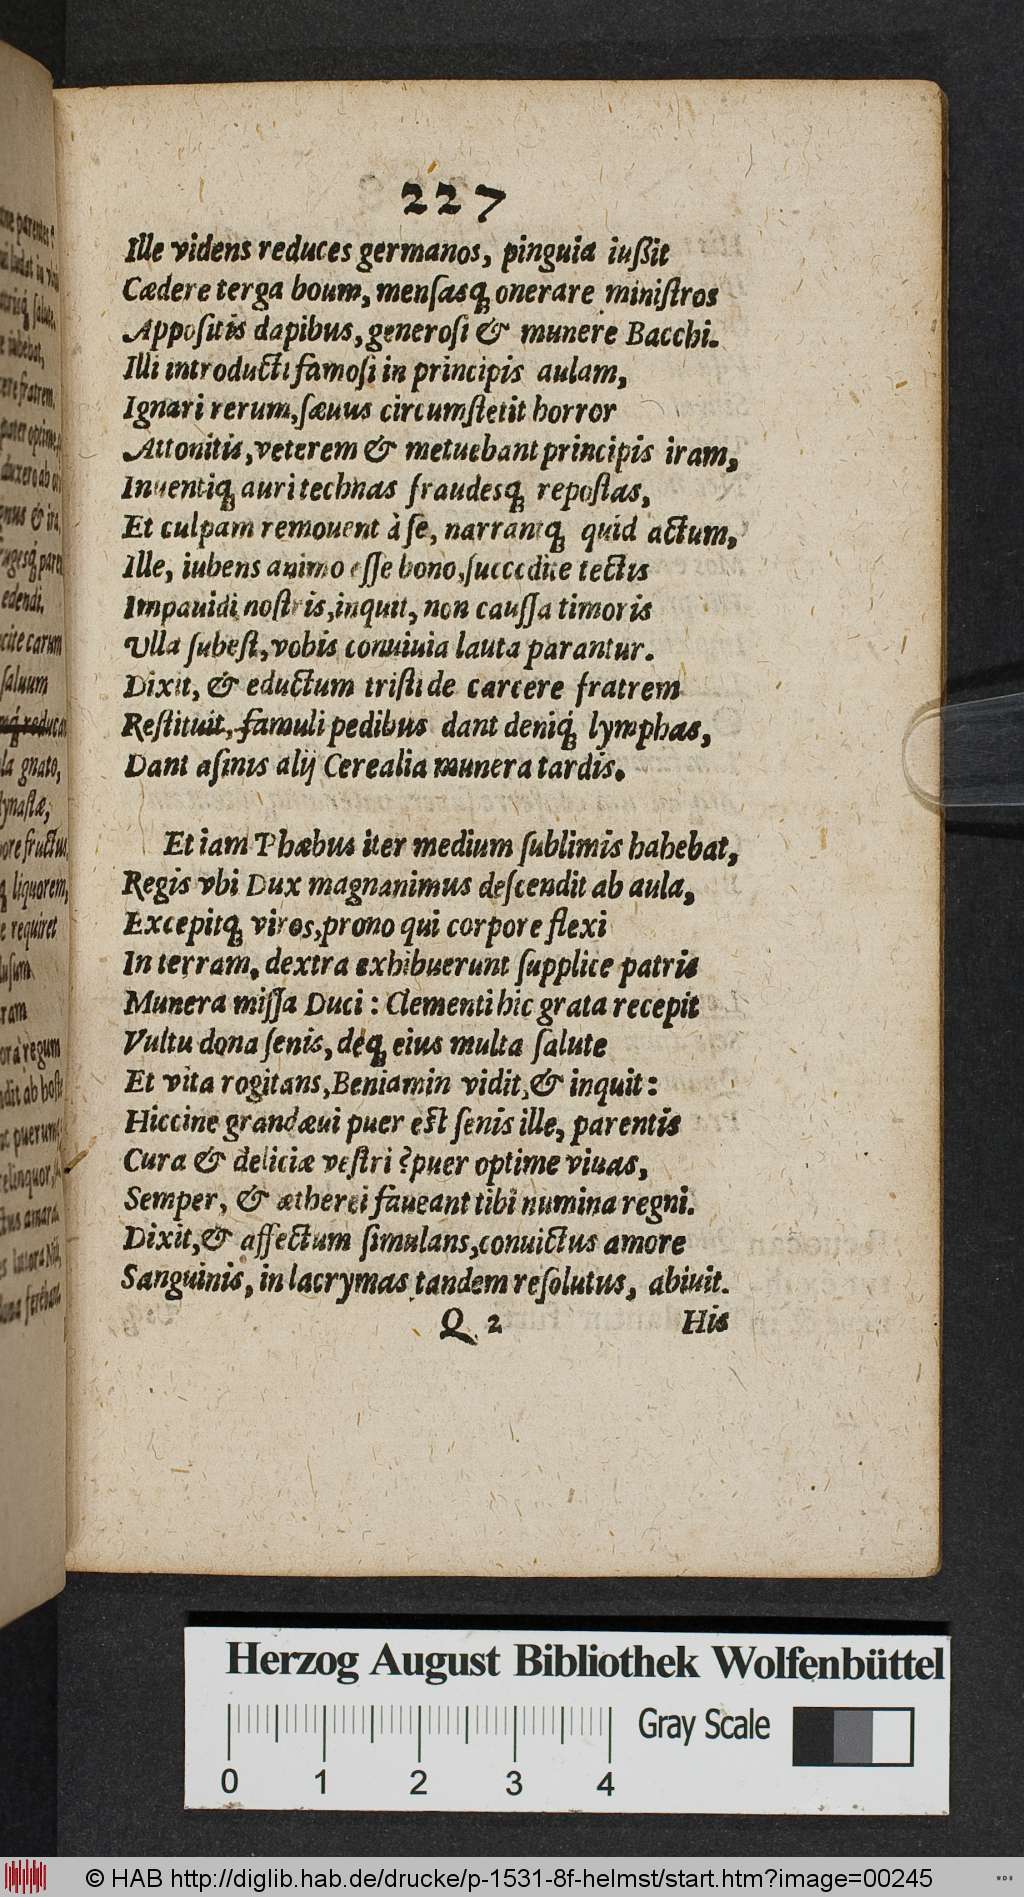 227
Ille videns reduces germanos, pinguia iußit
Cædere terga boum, mensasq́; onerare ministros
Appositis dapibus, generosi & munere Bacchi.
Illi introducti famosi in principis aulam,
Ignari rerum, sæuus circumstetit horror
Attonitis, veterem & metuebant principis iram,
Inuentiq́; auri technas fraudesq́; repostas,
Et culpam remouent à se, narrantq́; quid actum,
Ille, iubens animo esse bono, succedite tectis
Impauidi nostris, inquit, non caussa timoris
Ulla subest, vobis conuiuia lauta parantur.
Dixit, & eductum tristi de carcere fratrem
Restituit, famuli pedibus dant deniq́; lymphas,
Dant asinis alij Cerealia munera tardis.
Et iam Phæbus iter medium sublimis hahebat,
Regis vbi Dux magnanimus descendit ab aula,
Excepitq́; viros, prono qui corpore flexi
In terram, dextra exhibuerunt supplice patris
Munera missa Duci: Clementi hic grata recepit
Vultu dona senis, deq́; eius multa salute
Et vita rogitans, Beniamin vidit, & inquit:
Hiccine grandæui puer est senis ille, parentis
Cura & deliciæ vestri? puer optime viuas,
Semper, & ætherei faueant tibi numina regni.
Dixit, & affectum simulans, conuictus amore
Sanguinis, in lacrymas tandem resolutus, abiuit.
Q 2 His
Herzog August Bibliothek Wolfenbüttel
Gray Scale
0 1 2 3 4
© HAB http://diglib.hab.de/drucke/p-1531-8f-helmst/start.htm?image=00245